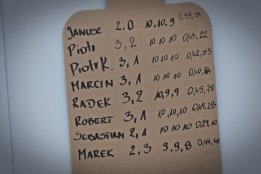 JANUSZ 2,0 10,10,9 0,59,31
Piotr 3,2 10 10 10 0,45,22
PiotrK. 3,1 10 10 10 0,42,53
MARCIN 3,1 10 10 10 0,40,84
RADEK 3,2 10,9,9 0,45,78
ROBERT 3,1 10 10 10 0,49,28
SEBASTIAN 2,1 10 10 10 0,29,10
MAREK 2,3 9,9,8